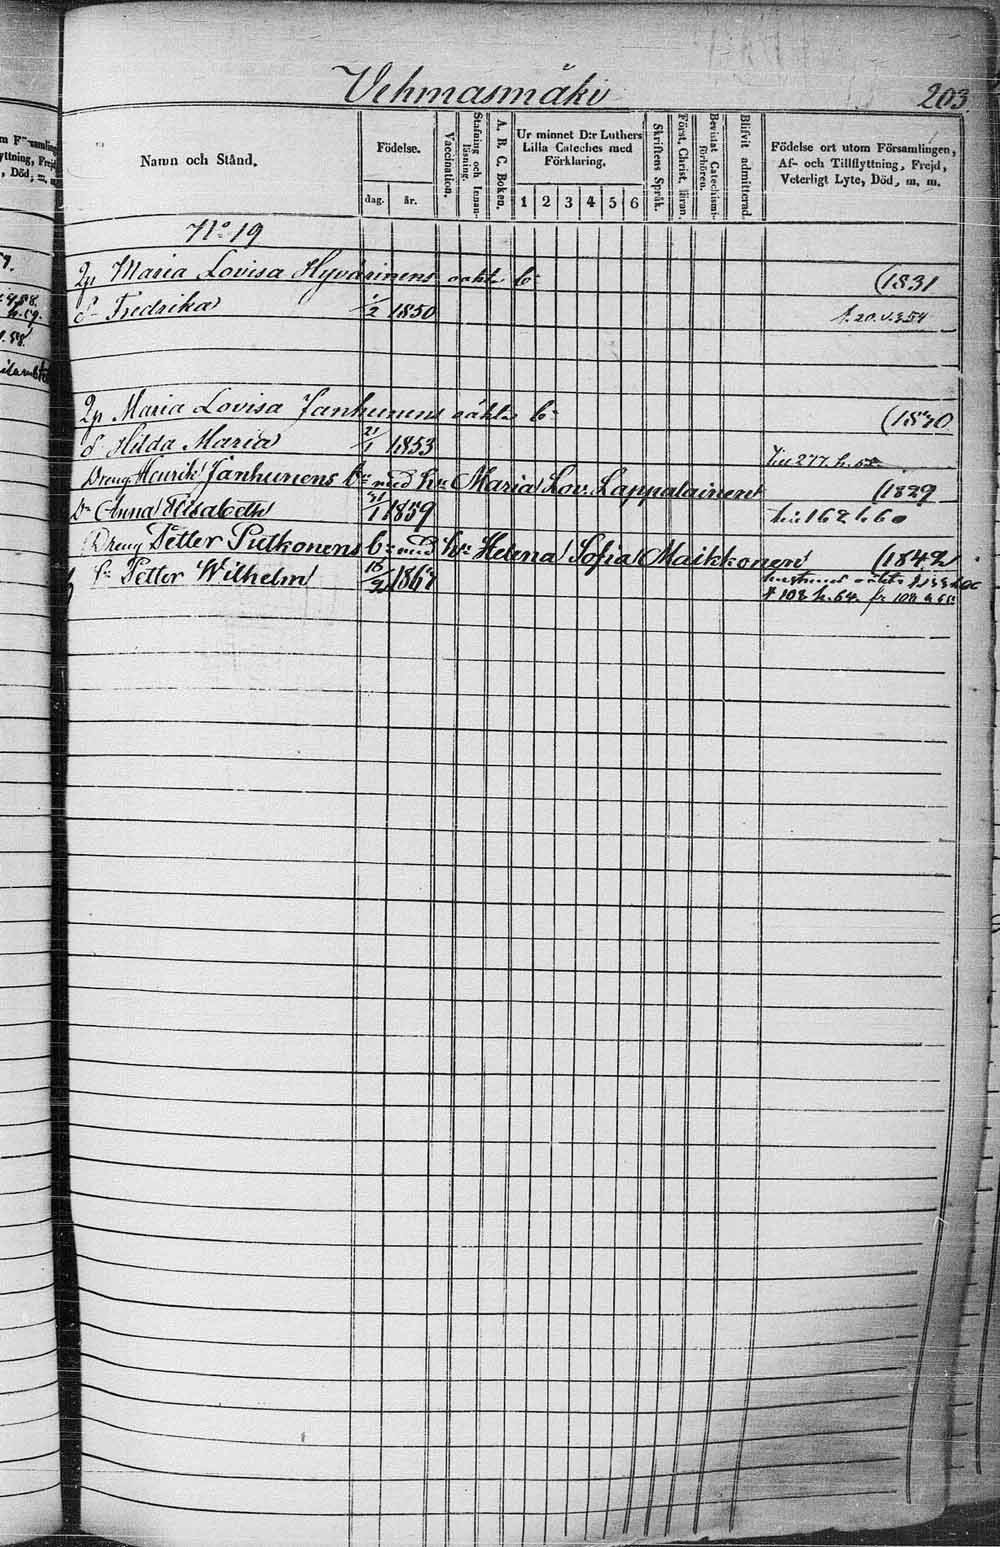 Vehmasmäki 203.
Namn och Stånd.
Födelse.
dag. år.
Vaccination.
Stafning och Innanläsning.
A. B. C. Boken.
Ur minnet D:r Luthers
Lilla Cateches med
Förklaring.
1 2 3 4 5 6
Skriftens Språk.
Först. Christ. läran.
Bevistat Catechismiförhören.
Blifvit admitterad.
Födelse ort utom Församlingen,
Af- och Tillflyttning, Frejd,
Veterligt Lyte, Död, m. m.
No 19
Maria Lovisa Hyvärinens oäkta b- (1831
d- Fredrika 1/2 1850
Maria Lovisa Janhunens oäkta b- (1830
d- Hilda Maria 21/1 1853
Dreng Henrik Janhunens b- med hu Maria Lov. Lappalainen (1829
Dr Anna Elisabeth 31/1 1859
Dreng Petter Putkonens b- med hu Helena Sofia Maikkonen (1842
Sn Petter Wilhelm 16/2 1867